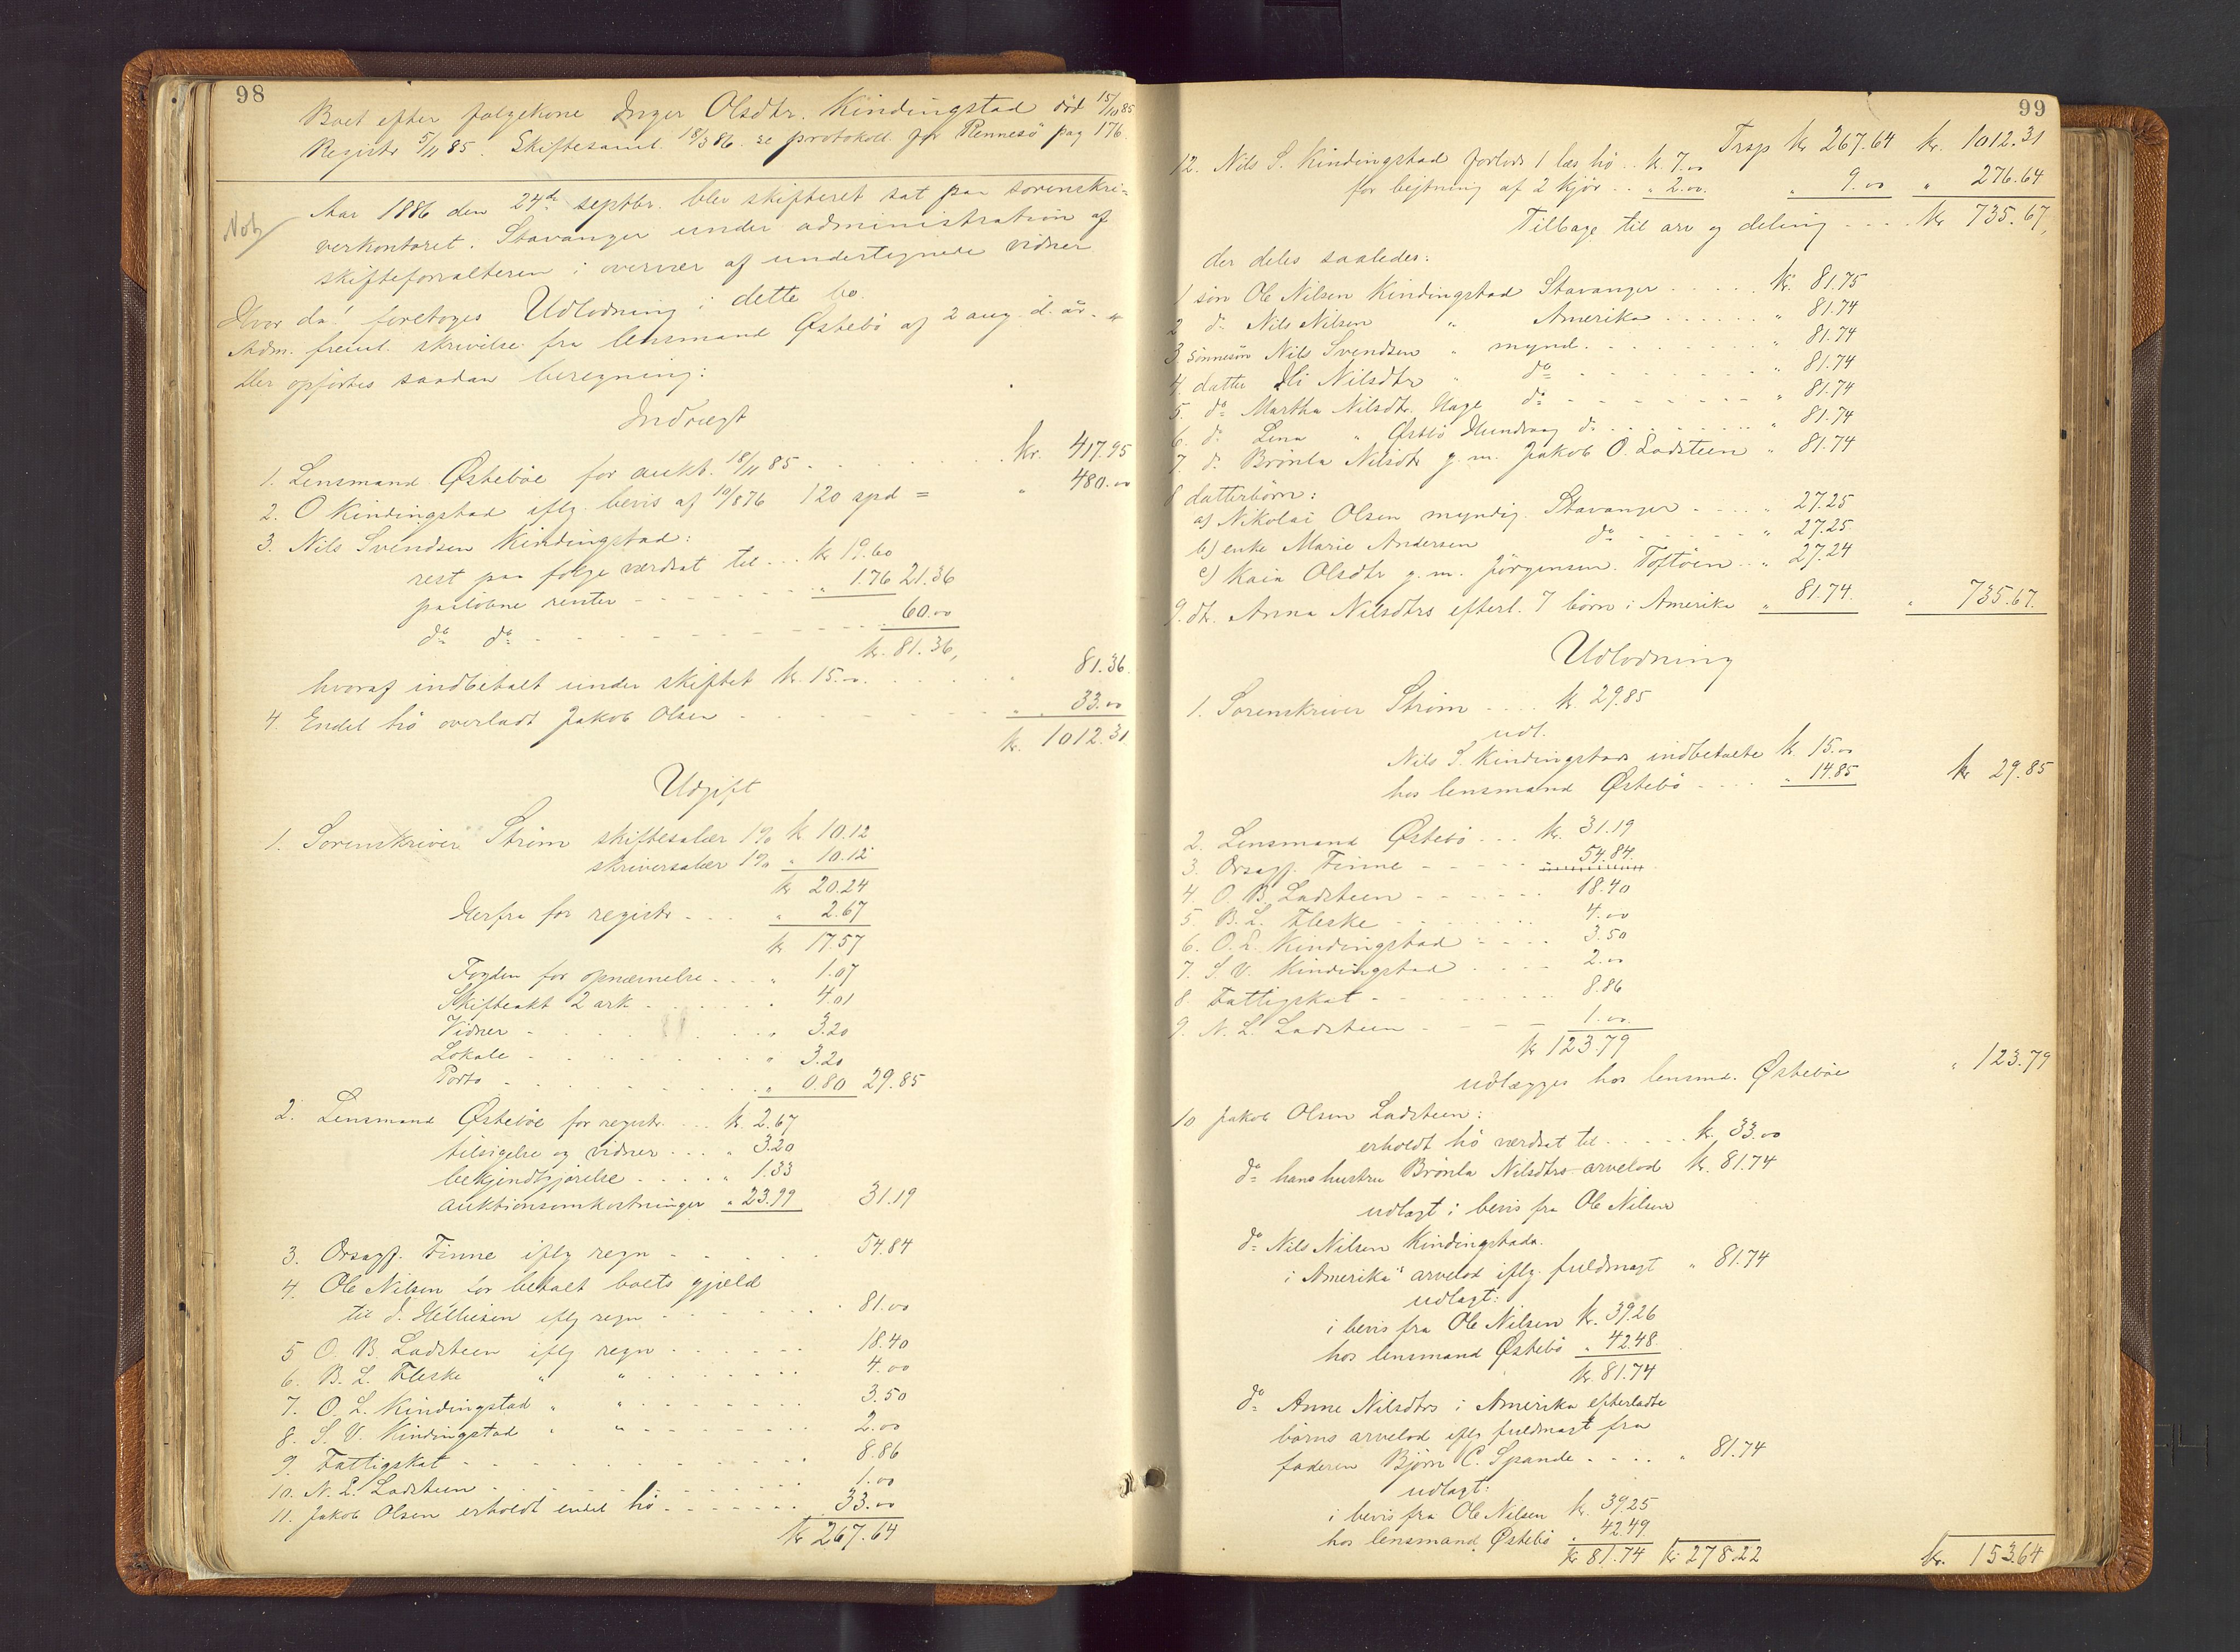 98
Boet efter følgekone Inger Olsdtr. Kindingstad död 15/10 85
Registr 5/11 85. Skiftesaml. 18/3 86. se protokoll for Rennesö pag 176.
Not
Aar 1886 den 24de septbr. blev skifteret sat paa sorenskri=
verkontoret i Stavanger under administration af
skifteforvalteren i overvær af undertegnede vidner
Hvor da! foretoges Udlodning i dette bo.
Adm. freml. skrivelse fra lensmand Østebö af 2 aug. d. år.
Der opførtes saadan beregning:
Indtægt
1. Lensmand Østeböe for aukt. 18/11 85 . . . . kr. 417.95
2. O Kindingstad iflg. bevis af 19/8 76 120 spd = " 480.00
3. Nils Svendsen Kindingstad:
rest paa følge værdsat til . . . kr 19.60
paaløbne renter - - - - - " 1.76 21.36
do do - - - - - 60.00
kr. 81.36,
hvoraf indbetalt under skiftet kr. 15.00 . . . . " 81.36.
4. Endel hö overladt Jakob Olsen - - - - - " 33.00
kr. 1012.31
Udgift
1. Sorenskriver Strøm skiftesalær 1% kr 10.12
skriversalær 1% " 10.12
kr 20.24
Herfra for registr - . . " 2.67
kr 17.57
Fogden for opnævnelse . . . " 1.07
Skifteakt 2 ark - . . . . . 4.01
Vidner - . . . . . " 3.20
Lokale - . . . . . " 3.20
Porto - . . . . . " 0.80 29.85
2. Lensmand Østeböe for registr. . . . kr. 2.67
tilsigelse og vidner . . . " 3.20
bekjendtgjørelse . . . . " 1.33
auktionsomkostninger " 23.99 31.19
3. Orsagf. Finne iflg regn - . . . . 54.84
4. Ole Nilsen for betalt boets gjæld
til J. Helliesen iflg regn - - - - . . . 81.00
5 O. B. Ladsteen iflg regn . . . . . . 18.40
6. B. L. Fleske " " . . . . . . 4.00
7. O. L. Kindingstad " " - - - - - - 3.50
8. S. V. Kindingstad " " - - - - - - 2.00
9. Fattigskat - - - . . . . . . 8.86
10. N. L. Ladsteen . . . . . . . 1.00
11. Jakob Olsen erholdt endel hö - - - - - - 33.00
kr 267.64
99
Trsp kr 267.64 kr. 1012.31
12. Nils S. Kindingstad forlods 1 læs hö . . kr. 7.00
for bejtning af 2 kjör . . " 2.00. " 9.00 " 276.64
Tilbage til arv og deling - - . . kr 735.67,
der deles saaledes:
1 sön Ole Nilsen Kindingstad Stavanger . . . . . kr. 81.75
2 do Nils Nilsen " Amerika . . . . . . " 81.74
3. sönnesön Nils Svendsen " mynd. . . . . . . " 81.74
4 datter Eli Nilsdtr " do - - - - - - " 81.74
5. do Martha Nilsdtr. Hage do - - - - - - " 81.74
6. do Lena " Østbö Hundvaag do . . . . . . " 81.74
7. do Brönla Nilsdtr g. m. Jakob O. Ladsteen " 81.74
8 datterbörn:
a) Nikolai Olsen myndig. Stavanger - . . . " 27.25
b) enke Marie Andersen do . . . . . " 27.25.
c) Kaia Olsdtr g. m. Jörgensen. Toftöen . . " 27.24
9. dtr. Anna Nilsdtrs efterl. 7 börn i Amerika " 81.74. " 735.67.
Udlodning
1. Sorenskriver Strøm . . . . kr. 29.85
udl.
Nils S. Kindingstads indbetalte kr. 15.00
hos lensmand Østebö . . . . " 14.85 kr 29.85
2. Lensmand Østebö . . . kr. 31.19
3. Orsagf. Finne - - - - - 54.84.
4 O. B. Ladsteen - - - - - - 18.40
5. B. L. Fleske - - - - . . . 4.00
6. O. L. Kindingstad - - . . . 3.50
7. S. V. Kindingstad . . . . - 2.00
8. Fattigskat - - - - - . . . 8.86
9. N. L. Ladsteen - - - - - 1.00
kr 123.79
udlægges hos lensmd. Østeböe " 123.79
10 Jakob Olsen Ladsteen:
erholdt hö værdsat til . . . . . kr. 33.00
do hans hustru Brönla Nilsdtrs arvelod kr. 81.74
udlagt i bevis fra Ole Nilsen
do Nils Nilsen Kindingstads.
i Amerika arvelod iflg. fuldmagt " 81.74
udlagt:
i bevis fra Ole Nilsen kr. 39.26
hos lensmand Østebö " 42.48.
kr. 81.74
do Anne Nilsdtrs i Amerika efterladte
börns arvelod iflg fuldmagt fra
faderen Bjørn C. Spande . . . . " 81.74
udlagt:
i bevis fra Ole Nilsen kr. 39.25
hos lensmand Østebö " 42.49
kr 81.74 kr 278.22 kr. 153.64